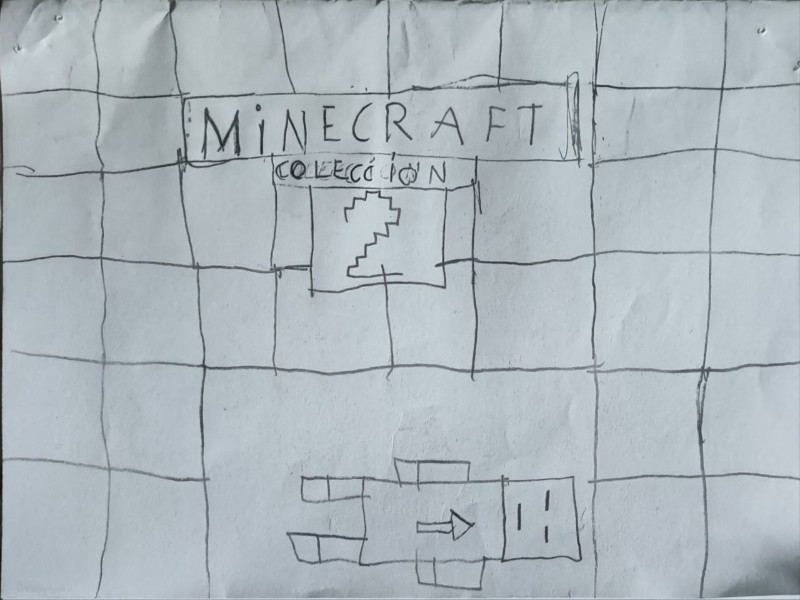 MiNECRAFT
COLECCIÓN
2